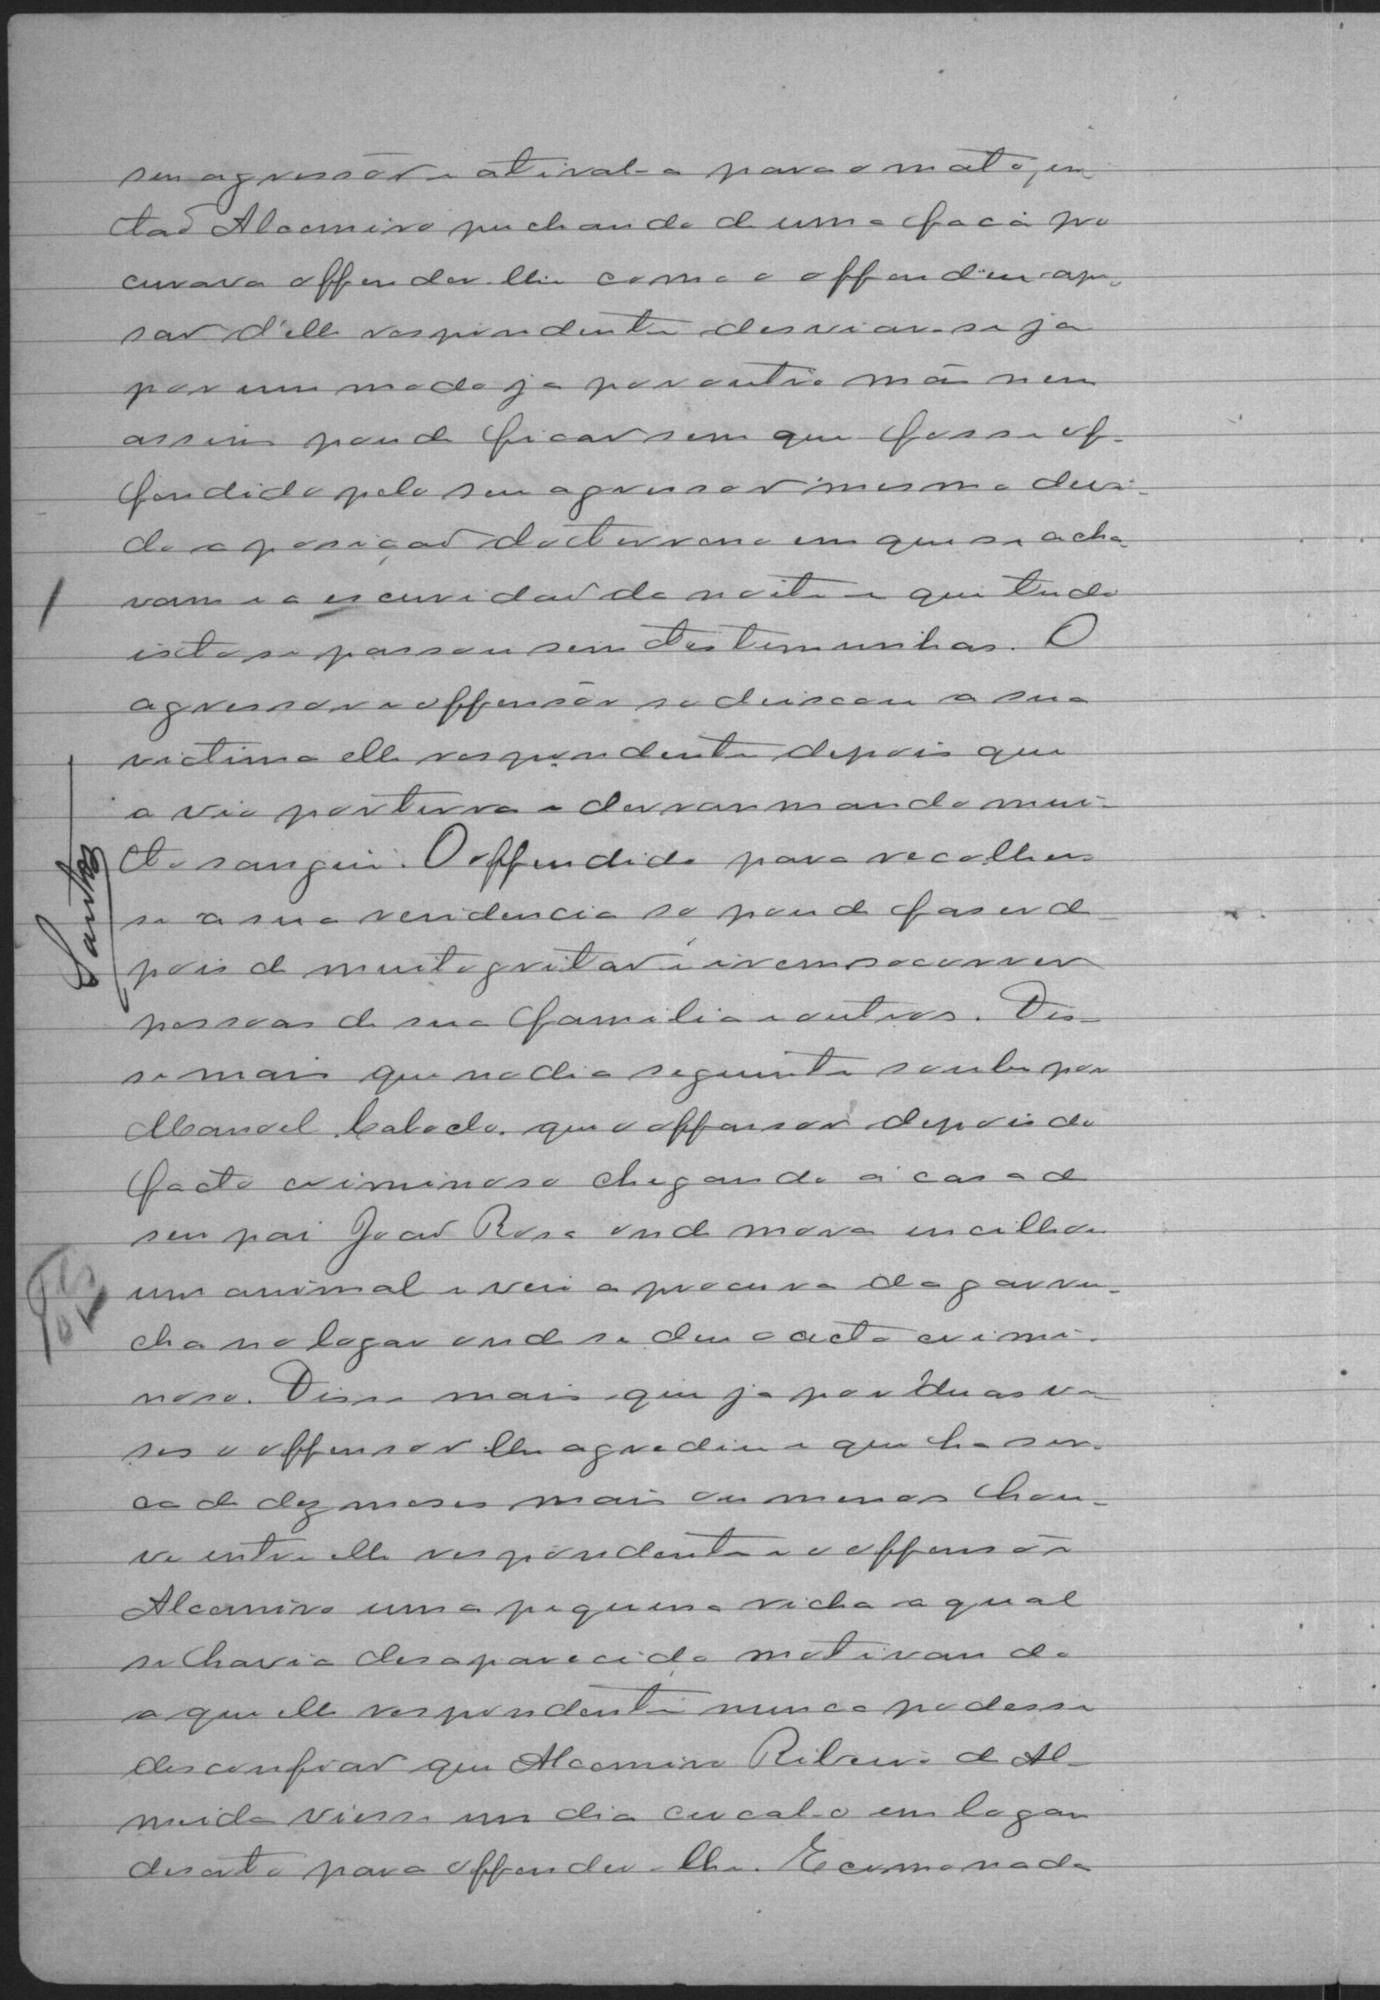 seu agressôr e atiral-a para o mato, en-
taõ Alcomiro puchando de uma faca pro
curava offender-lhe como o offendeu ape-
sar d'elle respondente desviar-se ja
por um modo ja por outro mâs nem
assim poude ficar sem que fosse of-
fendido pelo seu agressor mesmo devi-
do a posiçaõ do terreno em que se acha
vam e a escuridaõ da noite e que tudo
isto se passou sem testemunhas. O
agressor e offensôr so deiscou a sua
victima elle respondente depois que
a vio por terra e derrammando mui-
to sangue. O offendido para recolher
se a sua residencia so poude faser de-
pois de muito gritar e irem socorrer
pessoas de sua familia e outros. Dis-
se mais que no dia seguinte soube por
Manoel Calado. que o offensor depois do
facto criminoso chegando á casa de
seu pai Joaõ Rosa onde mora encilhou
um animal e veio a procura da garru-
cha no logar onde se deu o acto crimi-
noso. Disse mais que ja por duas ve-
ses o offensor lhe agrediu e que ha ser-
ca de dez meses mais ou menos hou-
ve entre elle respondente e o offensôr
Alcomiro uma pequena richa a qual
se havia desaparecido motivando
a que elle respondente nunca podesse
desconfiar que Alcomiro Ribeiro de Al-
meida viesse um dia cercal-o em logar
deserto para offender-lhe. E como nada
Santos